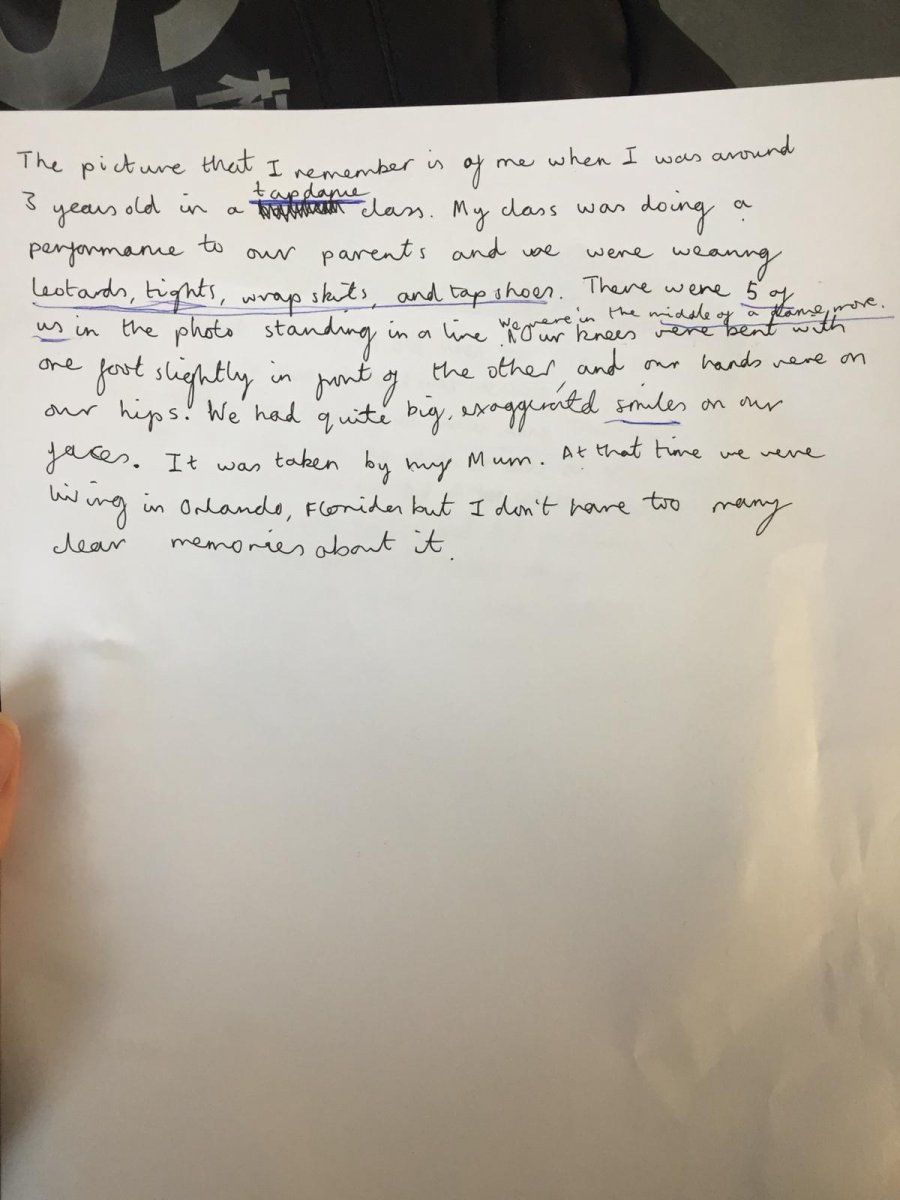 The picture that I remember is of me when I was around
tap dance
3 years old in a class. My class was doing a
performance to our parents and we were wearing
leotards, tights, wrap skirts, and tap shoes. There were 5 of
We were in the middle of a dance move.
us in the photo standing in a line. Our knees were bent with
one foot slightly in front of the other, and our hands were on
our hips. We had quite big, exaggerated smiles on our
faces. It was taken by my Mum. At that time we were
living in Orlando, Florider but I don't have too many
clear memories about it.